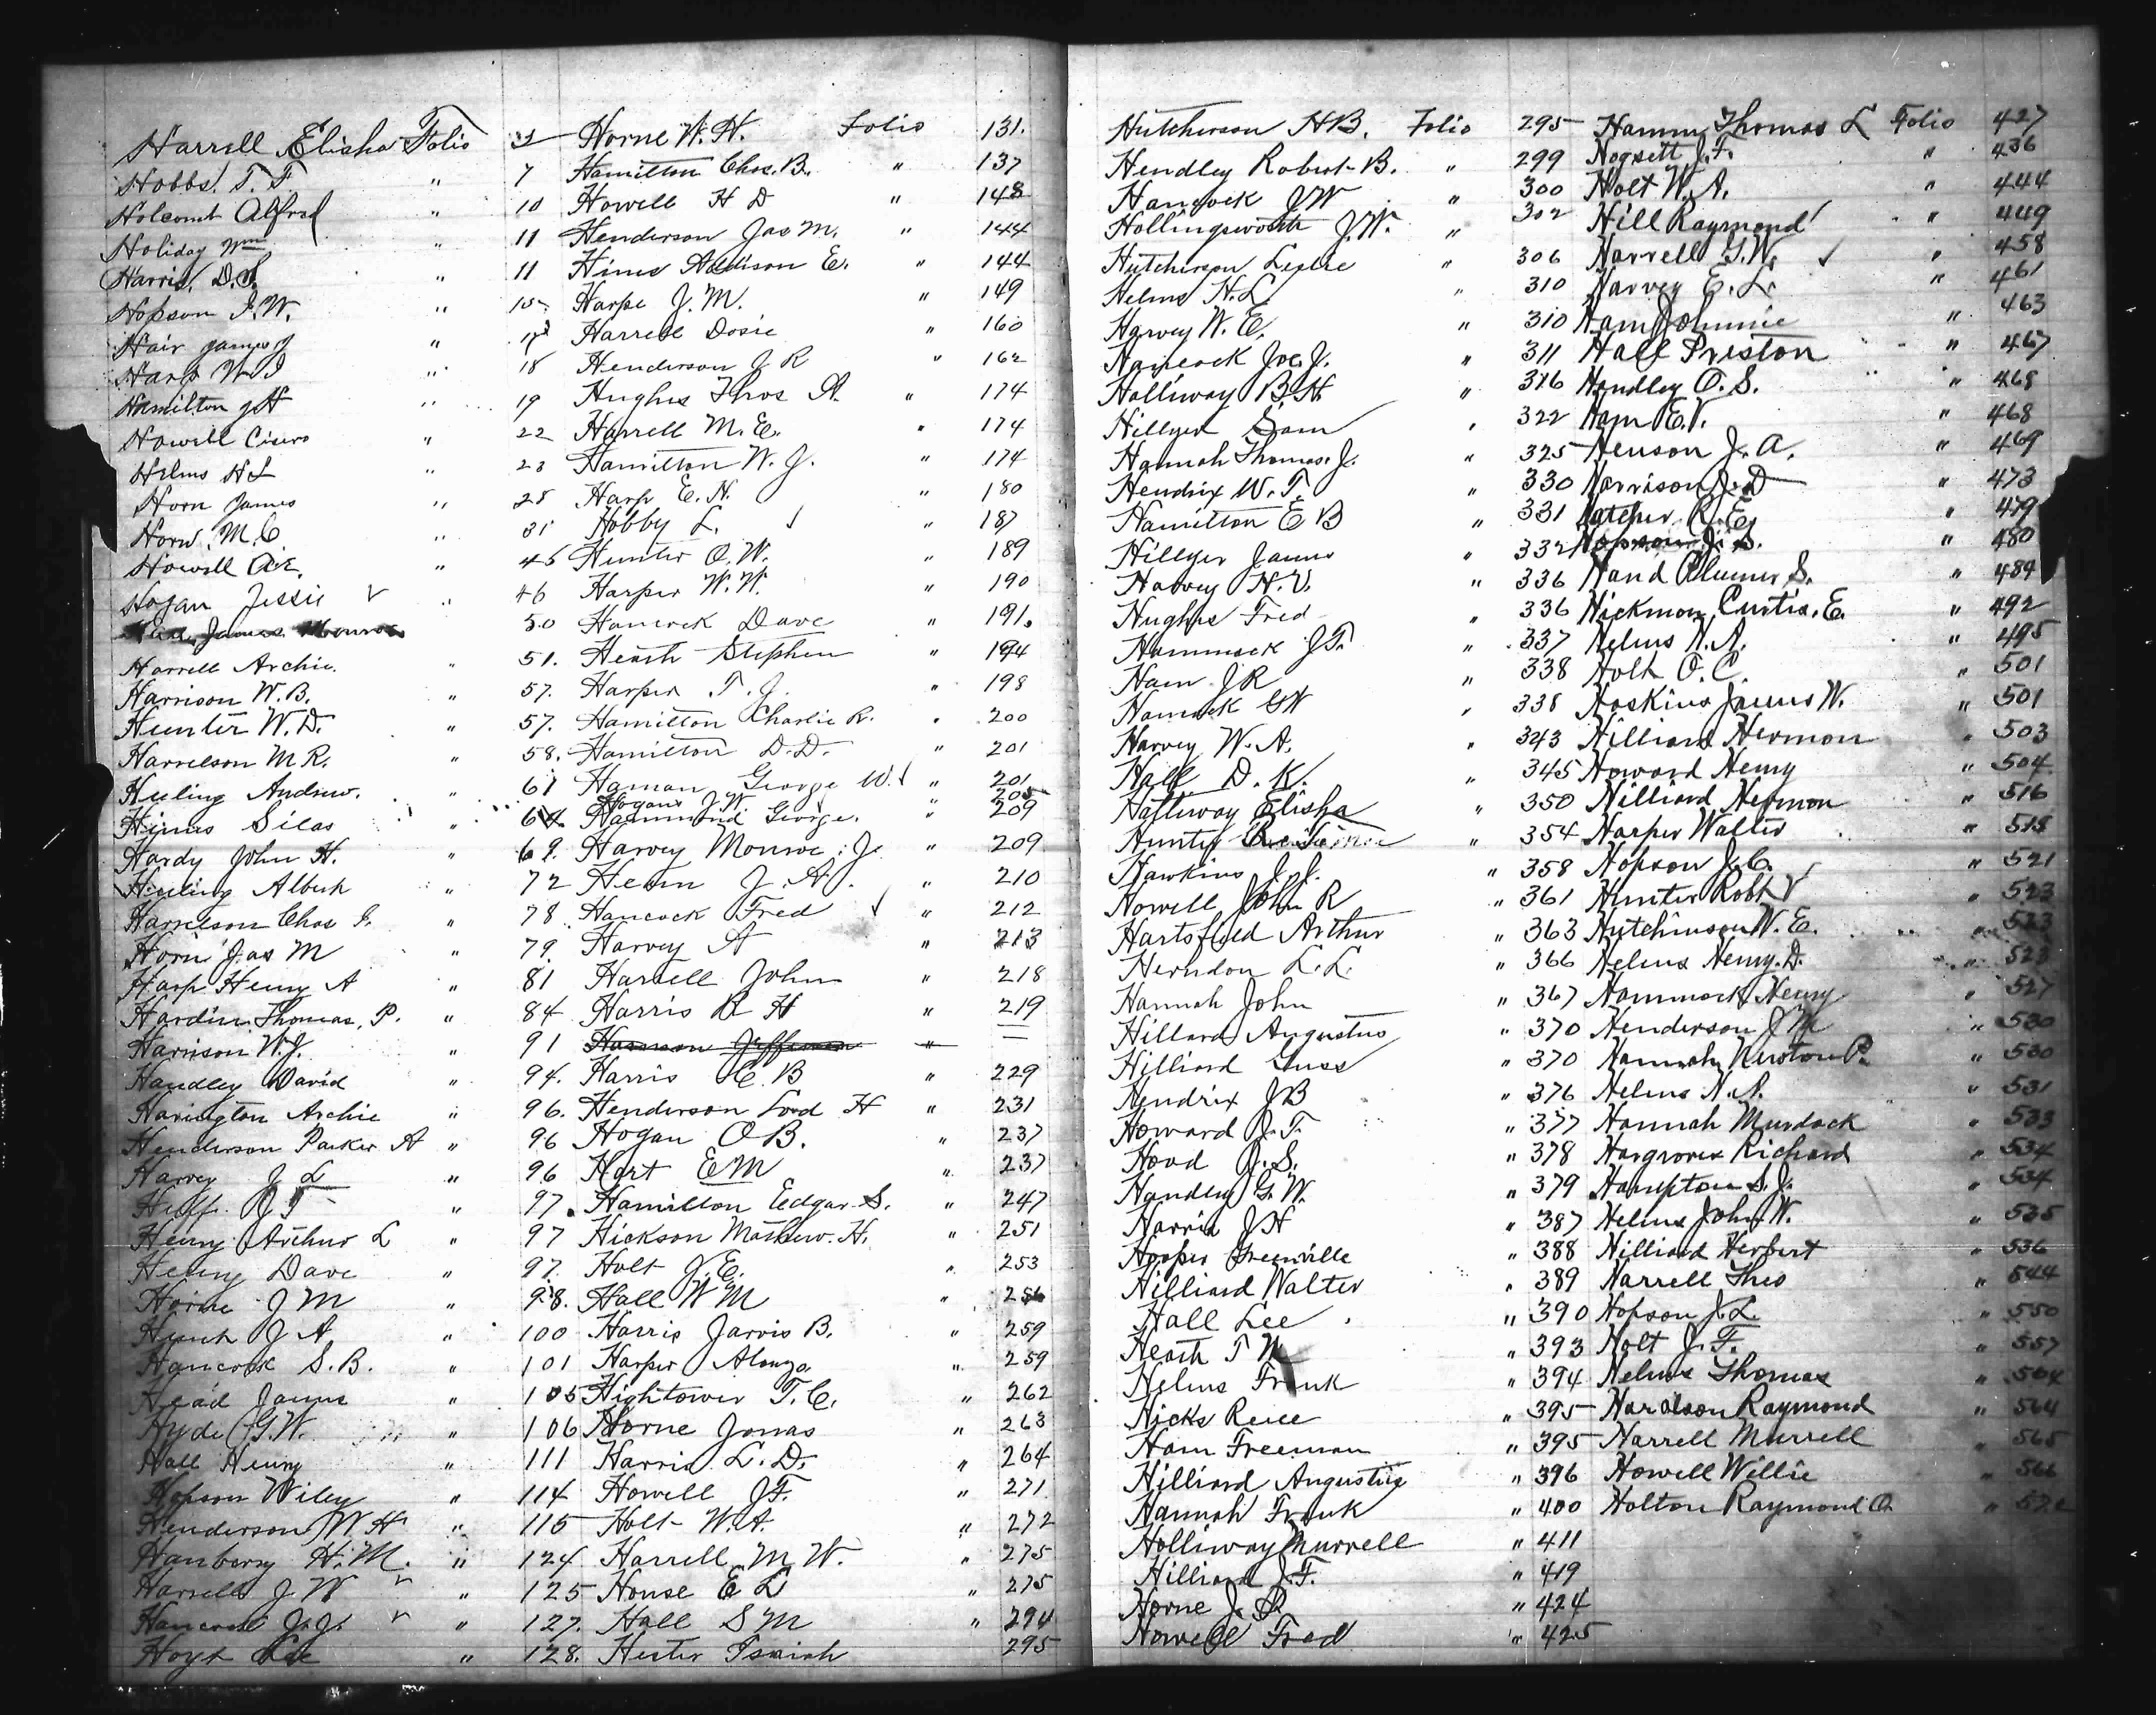 Harrell Elisha Folio 3
Hobbs T. F. " 7
Holcomb Alfred " 10
Holiday Wm " 11
Harris, D. S. " 11
Hopson J. W. " 15
Hair James J " 17
Harp W. J " 18
Hamilton J H " 19
Howell Cicero " 22
Helms H L " 23
Horn James " 28
Horn, M. C. " 31
Howell A. E. " 45
Hogan Jessie " 46
James Monroe 50
Harrell Archie " 51.
Harrison W. B. " 57.
Hunter W. D. " 57.
Harrelson M R. " 58.
Huling Andrew. " 61
Himes Silas " 64
Hardy John H. " 69.
Huling Albert " 72
Harrelson Chas " 78
Horn Jas M " 79.
Harp Henry A " 81
Hardin Thomas, P. " 84
Harrison W. J. " 91
Handley David " 94.
Harington Archie " 96.
Henderson Parker A " 96
Harvey J L " 96
Huff " 97.
Henry Arthur L " 97
Henry Dave " 97.
Horne J M " 98.
Hunt J A. " 100
Hancock S. B. " 101
Head James " 105
Hyde G. W. " 106
Hall Henry " 111
Hopson Wiley " 114
Henderson W H " 115
Hanberry H. M. " 124.
Harrell J W " 125
Hancock J. J. " 127.
Hoyt Lee " 128.
Horne W. H. Folio 131.
Hamilton Chas. B. " 137
Howell H D " 148
Henderson Jas M. " 144
Hims Addison E. " 144
Harpe J. M. " 149
Harrell Dosie " 160
Henderson J R " 162
Hughes Thos A. " 174
Harrell M. E. " 174
Hamilton W. J. " 174
Harp E. H. " 180
Hobby L. " 187
Hunter O. W. " 189
Harper W. W. " 190
Hancock Dave " 191.
Heath Stephen " 194
Harper T. J. " 198
Hamilton Charlie R. " 200
Hamilton D. D. " 201
Haman George W. " 201
Hogans J. W. 205
Hammond George. " 209
Harvey Monroe J. " 209
Hearn J. A. " 210
Hancock Fred " 212
Harvey A " 213
Harrell John " 218
Harris R H " 219
Harrison Jefferson "
Harris C. B " 229
Henderson Lood H " 231
Hogan O B. " 237
Hart E M " 237
Hamilton Edgar S. " 247
Hickson Mathew. H. " 251
Holt J. E. " 253
Hall W M " 256
Harris Jarvis B. " 259
Harper Alonza " 259
Hightower T. C. " 262
Horne Jonas " 263
Harris L. D. " 264
Howell J. F. " 271
Holt W. A. " 272
Harrell M W. " 275
House E L " 275
Hall S M " 294
Hester Isaiah 295
Hutcherson H B. Folio 295
Hendley Robert B. " 299
Hancock J W " 300
Hollingsworth J. W. " 302
Hutcherson Leslie " 306
Helms H. L. " 310
Harvey W. E. " 310
Hancock Joe J. " 311
Holliway B. H. " 316
Hillyer Sam " 322
Hannah Thomas. J. " 325
Hendrix W. T. " 330
Hamilton E B " 331
Hillyer James " 332
Harvey N. V. " 336
Hughes Fred " 336
Hammock J T. " 337
Ham J R " 338
Hancock G W " 338
Harvey W. A. " 343
Hall D. K. " 345
Halliway Elisha " 350
Hunter " 354
Hawkins J. J. " 358
Howell John R " 361
Hartsfield Arthur " 363
Herndon L. L. " 366
Hannah John " 367
Hillard Augustus " 370
Hilliard Guss " 370
Hendrix J B " 376
Howard J. T. " 377
Hood J. S. " 378
Handley G. W. " 379
Harris J H " 387
Hooper Greenville " 388
Hilliard Walter " 389
Hall Lee " 390
Heath T W " 393
Helms Frank " 394
Hicks Reice " 395
Ham Freeman " 395
Hilliard Augustus " 396
Hannah Frank " 400
Holliway Murrell " 411
Hilliard J. F. " 419
Horne J. P. " 424
Howell Fred " 425
Hamm Thomas L Folio 427
Hogsett J. F. " 436
Holt W. A. " 444
Hill Raymond " 449
Harrell G. W. " 458
Harvey E. L. " 461
Ham Johnnie " 463
Hall Preston " 467
Handley O. S. " 468
Ham E. V. " 468
Henson J. A. " 469
Harrison J. D " 473
Hatcher R. E. " 479
Hopson J. S. " 480
Hand Plumer S. " 489
Hickmon, Curtis, E. " 492
Helms N. N. " 495
Holt O. C. " 501
Hoskins James W. " 501
Hilliard Hermon " 503
Howard Henry " 504
Hilliard Hermon " 516
Harper Walter " 518
Hopson J. C. " 521
Hunter Robt " 523
Hutchinson W. E. 523
Helms Henry. D. " 523
Hammock Henry " 527
Henderson J M " 530
Hannah Newton P. " 530
Helms N. N. " 531
Hannah Murdock " 533
Hargroves Richard " 534
Hampton S. J. " 534
Helms John W. " 535
Hilliard Herbert " 536
Harrell Theo " 544
Hopson J. L. " 550
Holt J. F. " 557
Helms Thomas " 564
Haralson Raymond " 564
Harrell Murrell " 565
Howell Willie " 566
Holton Raymond O. "